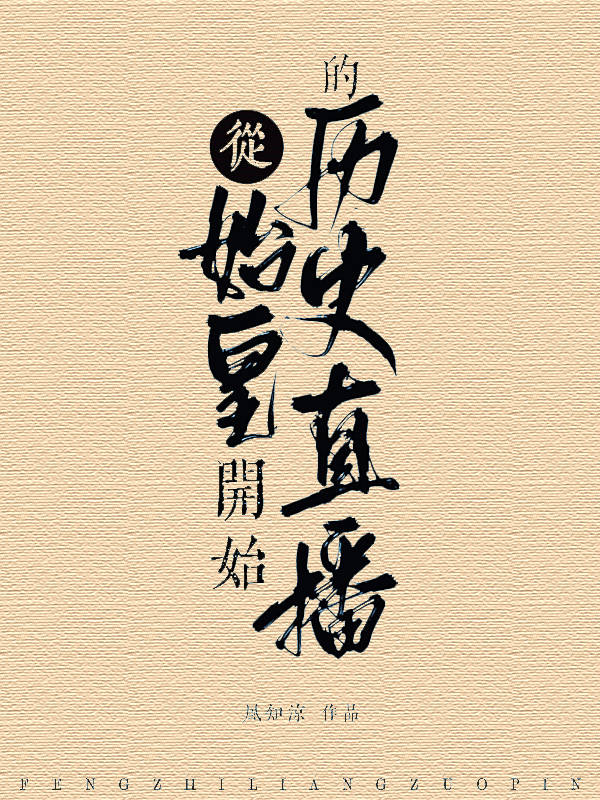 從始皇開始
的历史直播
風知凉 作品
FENGZHILIANGZUOPIN